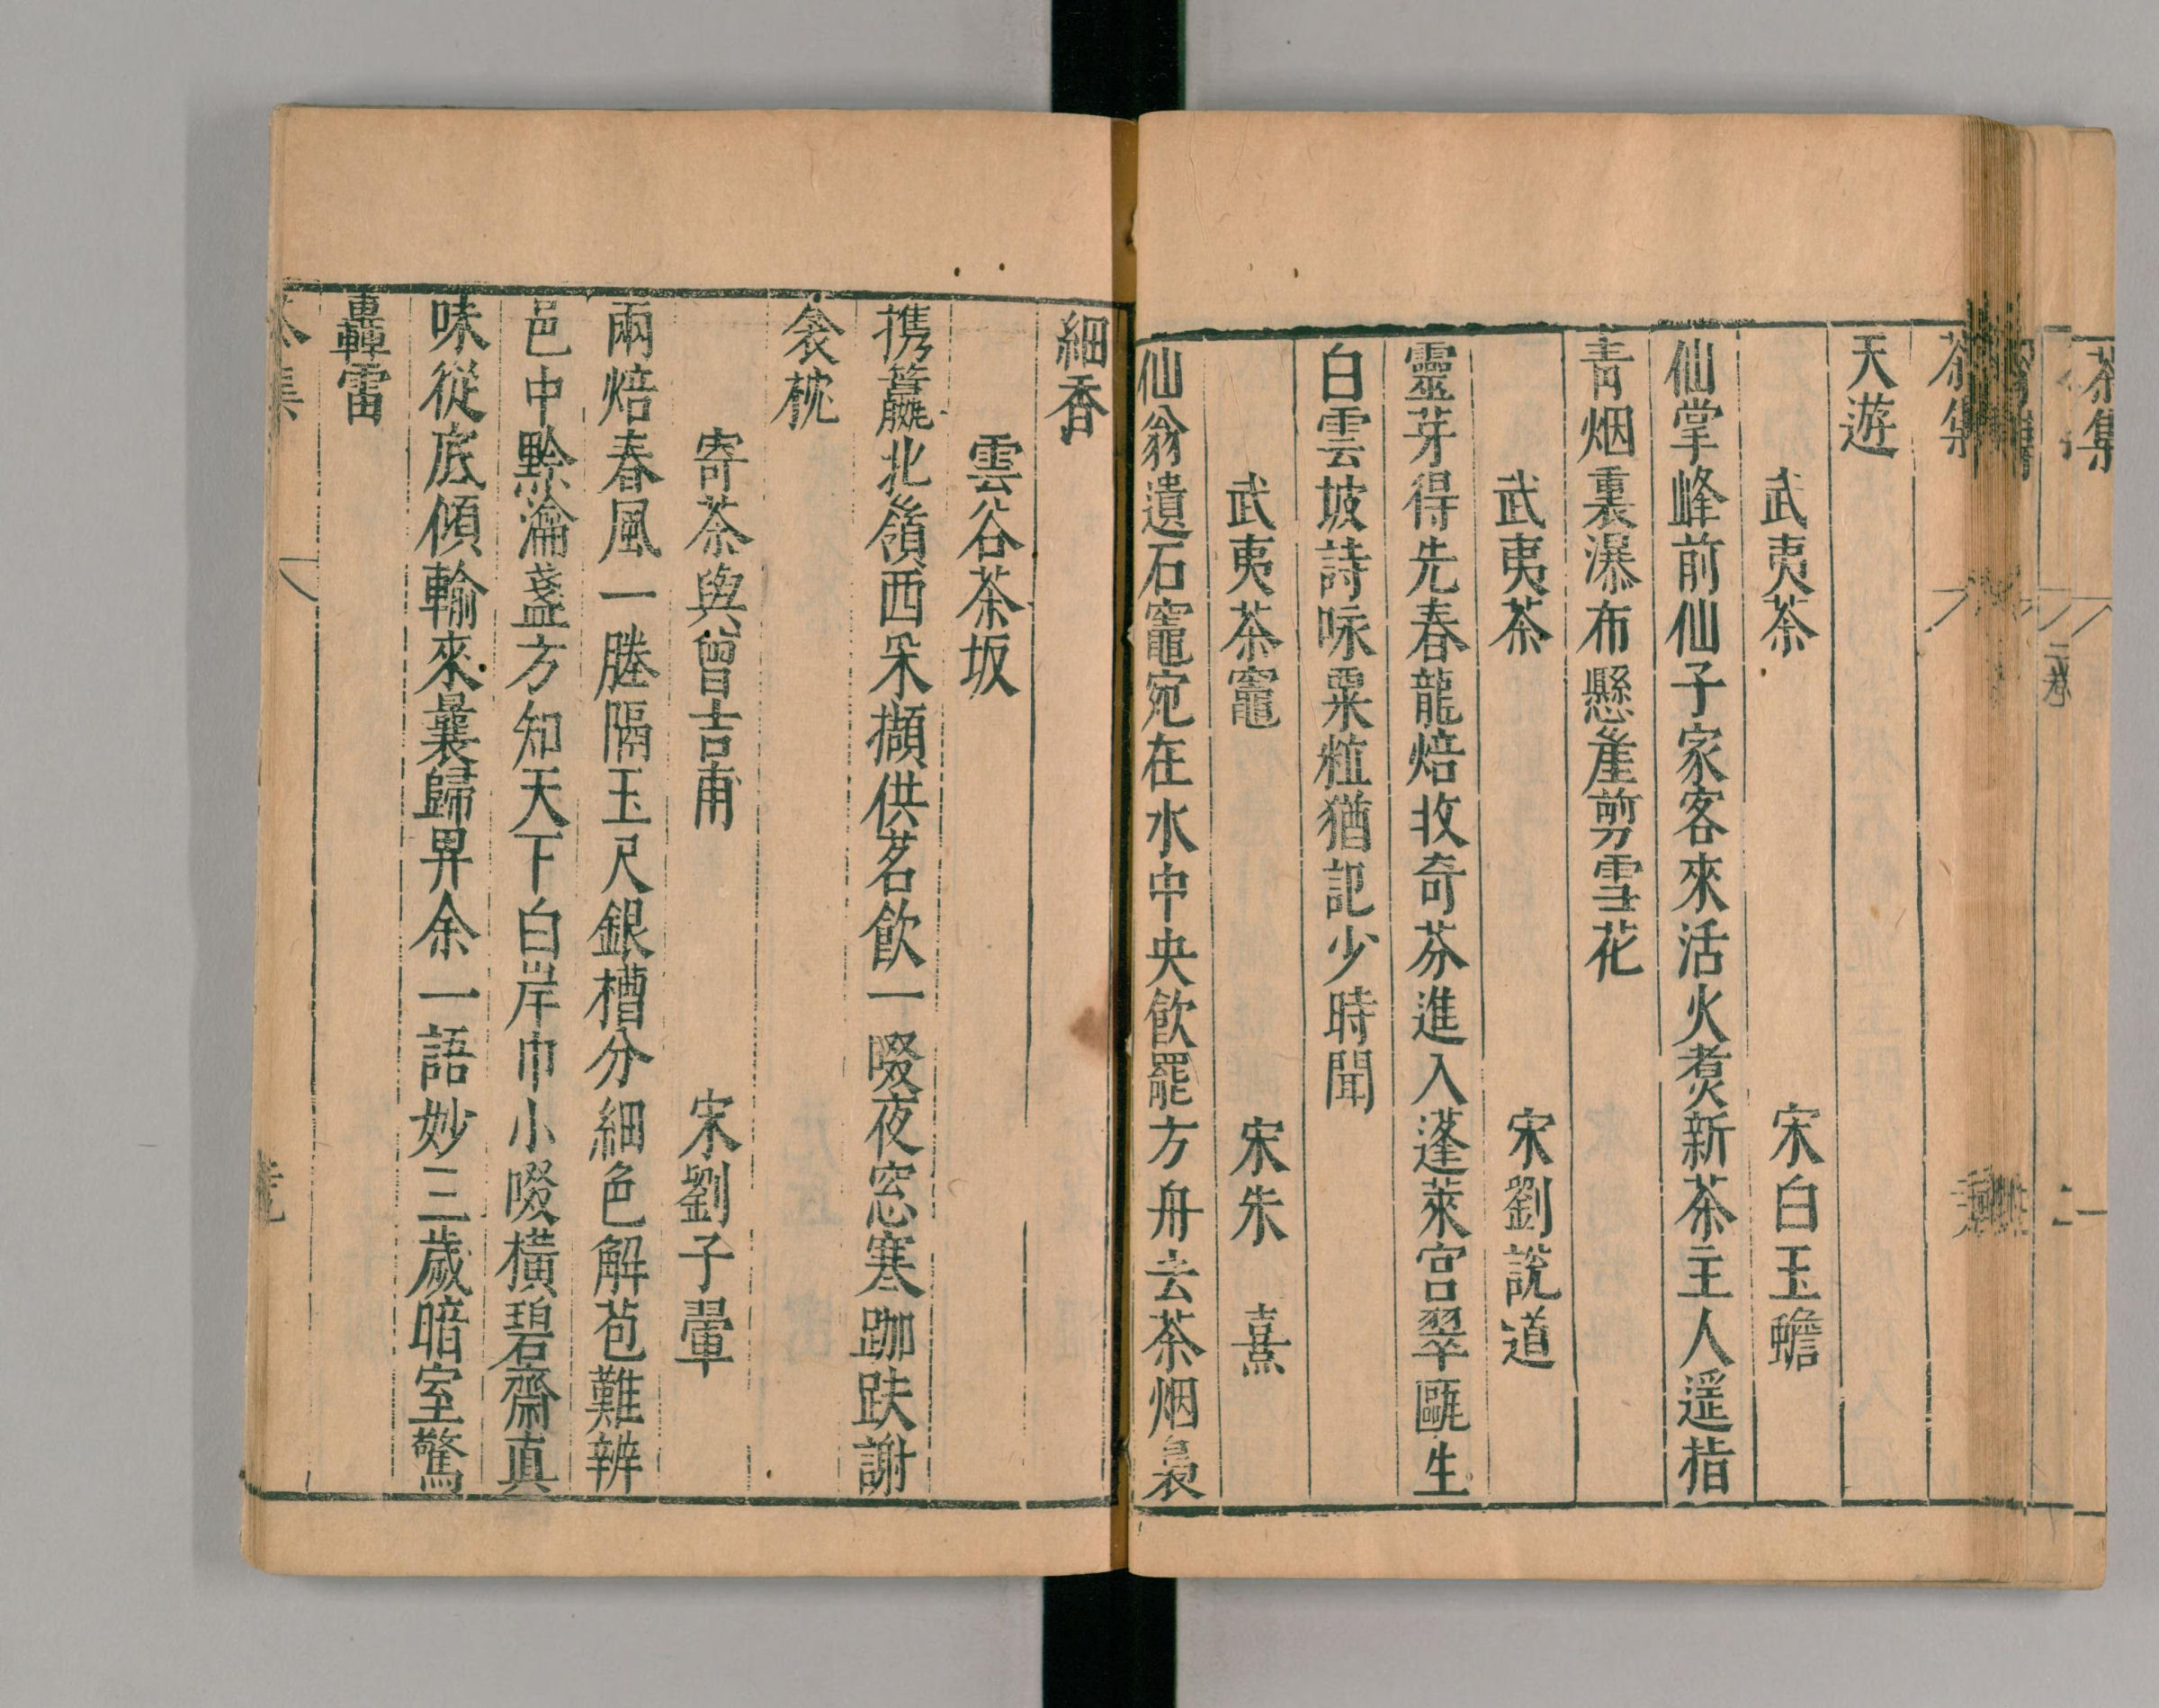 茶集
二
茶集
天遊
武夷茶　宋白玉蟾
仙掌峰前仙子家客來活火煑新茶主人遥指
青烟裏瀑布懸崖剪雪花
武夷茶　宋劉說道
靈芽得先春龍焙收奇芬進入蓬萊宮翠甌生
白雲坡詩咏粟粒猶記少時聞
武夷茶竈　宋朱　熹
仙翁遺石竈宛在水中央飲罷方舟去茶烟裊
細香
雲谷茶坂
携籯北嶺西采擷供茗飲一啜夜窓寒跏趺謝
衾枕
寄茶與曾吉甫　宋劉子翬
兩焙春風一塍隔玉尺銀槽分細色解苞難辨
邑中黔瀹盞方知天下白岸巾小啜橫碧齋真
味從底傾輸來曩歸畀余一語妙三歲暗室驚
轟雷